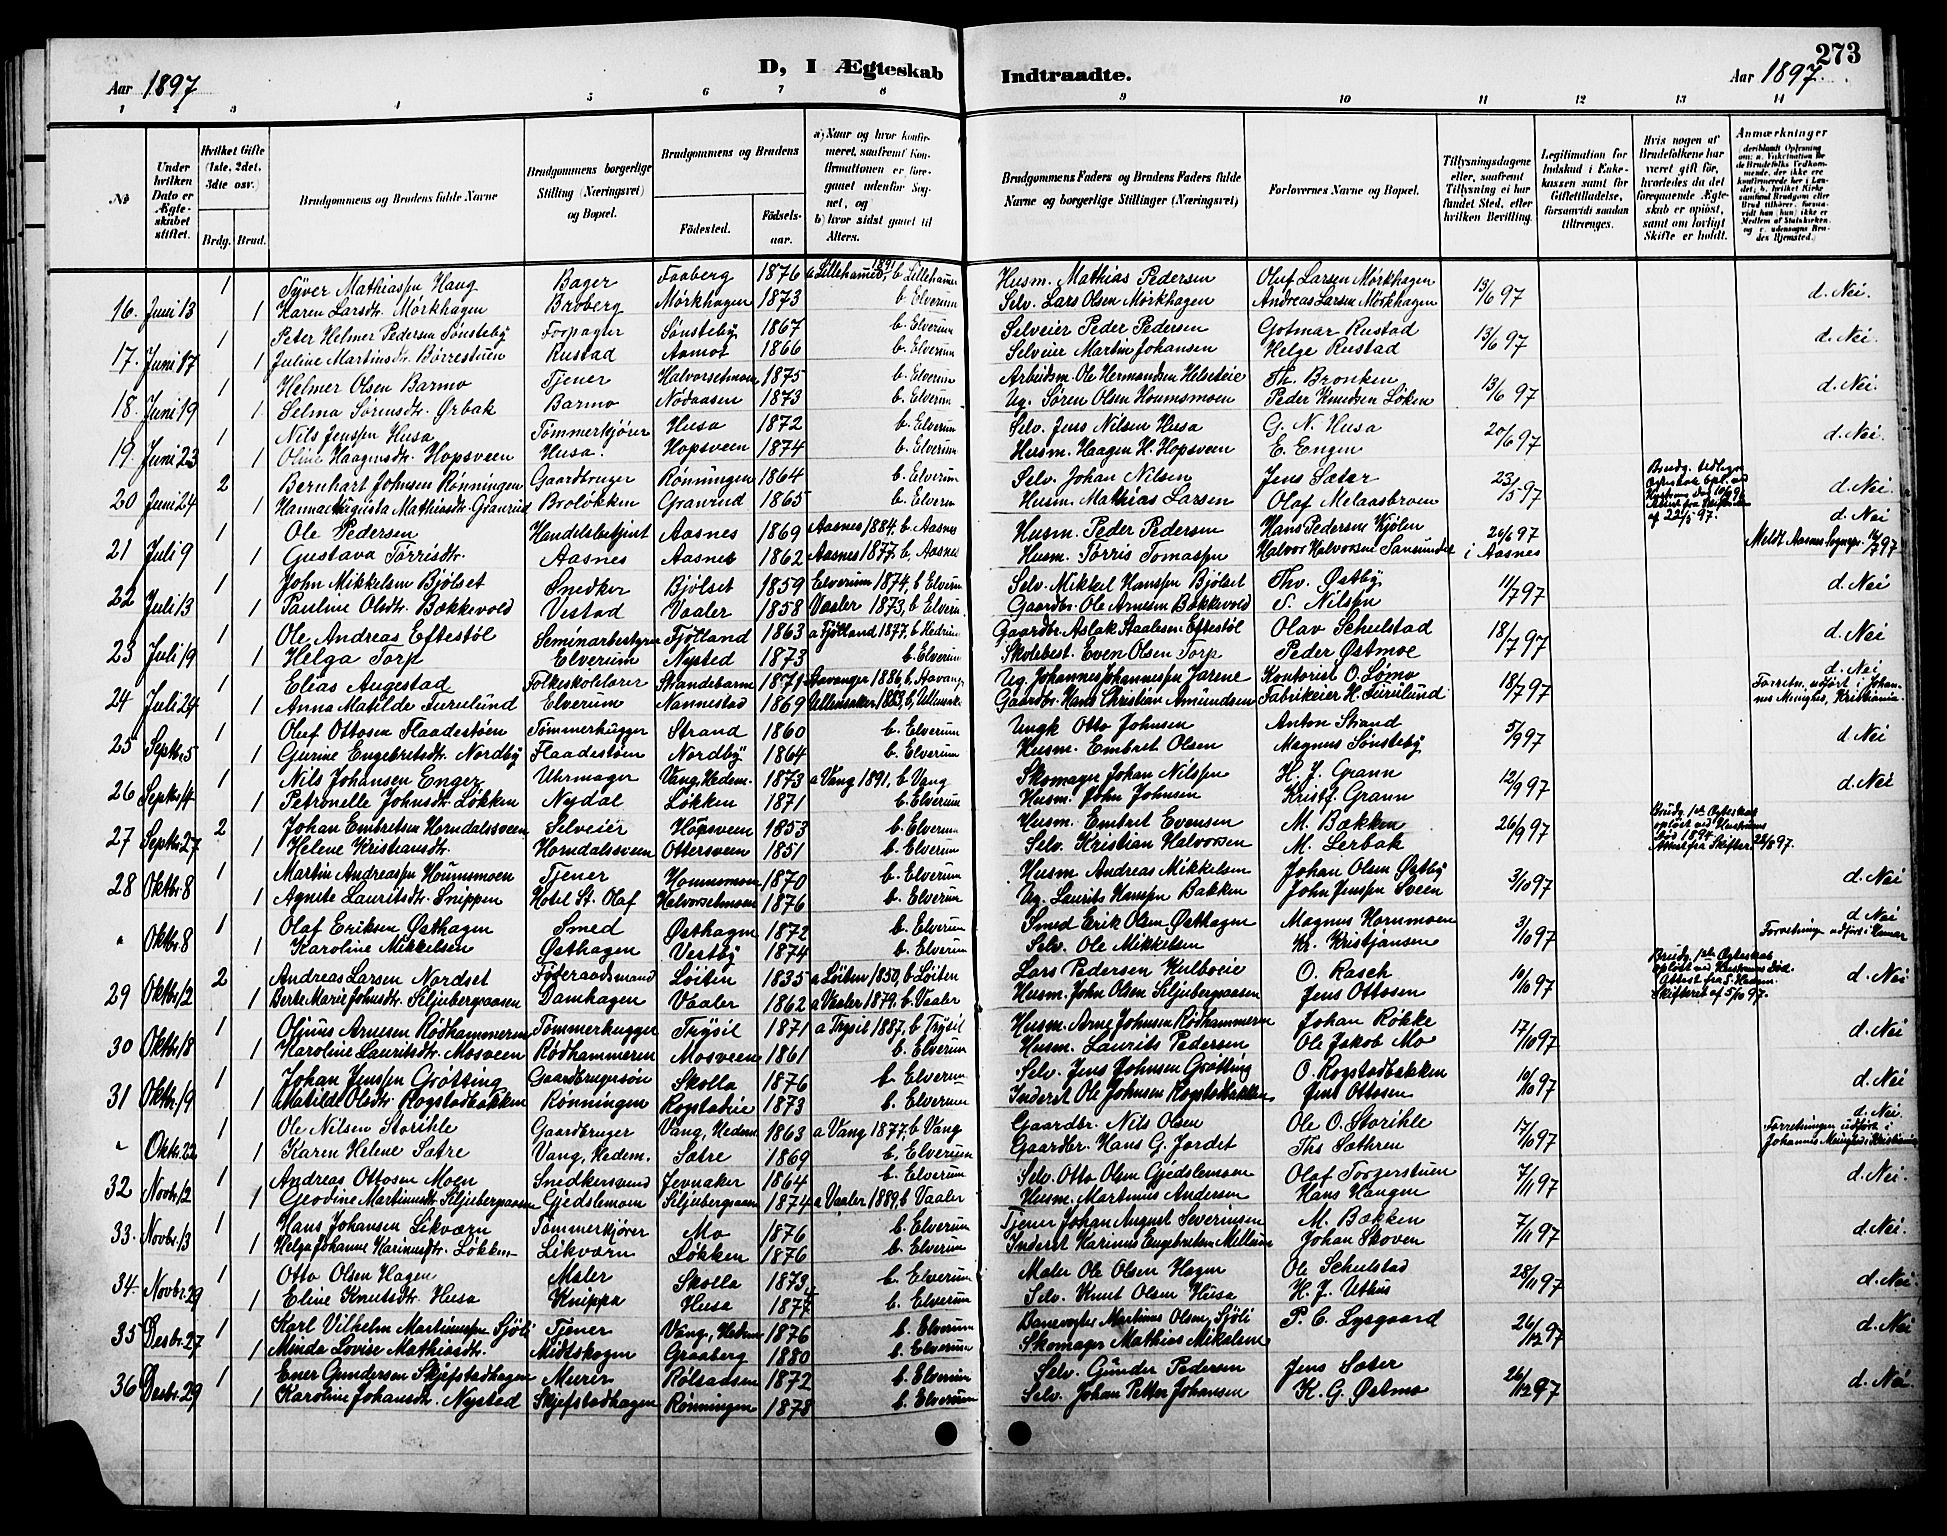 273
Aar 1897 D, I Ægteskab Indtraadte. Aar 1897.
1 2 3 4 5 6 7 8 9 10 11 12 13 14
No
Under hvilken Dato er Ægteskabet stiftet.
Hvilket Gifte (1ste, 2det, 3die osv.)
Brdg. Brud.
Brudgommens og Brudens fulde Navne
Brudgommens borgerlige Stilling (Næringsvei) og Bopæl.
Brudgommens og Brudens
Fødested. Fødselsaar.
a) Naar og hvor konfirmeret, saafremt Konfirmationen er foregaaet udenfor Sognet, og
b) hvor sidst gaaet til Alters.
Brudgommens Faders og Brudens Faders fulde Navne og borgerlige Stillinger (Næringsvei)
Forlovernes Navne og Bopæl.
Tillysningsdagene eller, saafremt Tillysning ei har fundet Sted, efter hvilken Bevilling.
Legitimation for Indskud i Enkekassen samt for Giftetilladelse, forsaavidt saadan tiltrænges.
Hvis nogen af Brudefolkene har været gift før, hvorledes da det foregaaende Ægteskab er opløst, samt om lovligt Skifte er holdt.
Anmærkninger
1 Tyver Mathiassen Haug Bager Faaberg 1876 a Lillehamer 1891, b Lillehamer Husm. Mathias Pedersen Oluf Larsen Mørkhagen 13/6 97 d. Nei.
16. Juni 13 1 Karen Larsdtr. Mørkhagen Broberg Mørkhagen 1873 b. Elverum Selv. Lars Olsen Mørkhagen Andreas Larsen Mørkhagen
1 Peter Helmer Pedersen Sønsteby Forpagter Sønsteby 1867 b. Elverum Selveier Peder Pedersen Gotmar Rustad 13/6 97 d. Nei.
17. Juni 17 1 Juline Martinsdtr. Børrestuen Rustad Aamot 1866 b. Elverum Selveier Martin Johansen Helge Rustad
1 Helmer Olsen Barmo Tjener Halvorsetmoen 1875 b. Elverum Arbeidsm. Ole Hermandsen Helseteie Th. Bronken 13/6 97 d. Nei.
18. Juni 19 1 Selma Sørensdtr. Ørbak Barmo Nodaasen 1873 b. Elverum Ug. Søren Olsen Hournsmoen Peder Knudsen Løken
1 Nils Jenssen Husa Tømmerkjører Husa 1872 b. Elverum Selv. Jens Nilsen Husa G. N. Husa 20/6 97 d. Nei.
19. Juni 23 1 Oline Haagensdtr. Hopsveen Husa Hopsveen 1874 b. Elverum Husm. Haagen H. Hopsveen E. Engen
2 Bernhart Johnsen Rønningen Gaardbruger Rønningen 1864 b. Elverum Selv. Johan Nilsen Jens Sæter 23/5 97 d. Nei
20 Juni 24 1 Hanna Augusta Mathiasdtr. Granrud Broløkken Granrud 1865 b. Elverum Husm. Mathias Larsen Olaf Melaasbroen af 22/5 97.
1 Ole Pedersen Handelsbetjent Aasnes 1869 Aasnes 1884, b. Aasnes Husm. Peder Pedersen Hans Pedersen Kjølen 20/6 97 d. Nei
21 Juli 9 1 Gustava Tørrisdtr. Aasnes Aasnes 1862 Aasnes 1877, b. Aasnes Husm. Tørris Tomassen Halvor Halvorsen i Aasnes
1 John Mikkelsen Bjølset Snedker Bjølset 1859 Elverum 1874, b Elverum Selv. Mikkel Hanssen Bjølset Thv. Østby 11/7 97 d. Nei
22 Juli 13 1 Pauline Olsdtr. Bækkevold Vestad Vaaler 1858 Vaaler 1873, b Elverum Gaardbr. Ole Arnesen Bækkevold S. Nilssen
1 Ole Andreas Eftestøl Seminarbestyrer Fjotland 1863 a Fjotland 1877, b Hedrum Gaardbr. Aslak Staalesen Eftestøl Olav Schulstad 18/7 97 d. Nei
23 Juli 19 1 Helga Torp Elverum Nysted 1873 b. Elverum Skolebest. Even Olsen Torp Peder Østmoe
1 Elias Augestad Folkeskolelærer Strandebarm 1871 Stavanger 1886, b. Stavang. Ug. Johannes Johannessen Jarene Kontorist O. Lømo 18/7 97 d. Nei
24 Juli 29 1 Anna Matilde Furulund Elverum Nannestad 1869 Ullensaker 1883, b. Ullensak. Gaardbr. Hans Christian Amundsen Fabrikeier H. Furulund Forretn. udført i Johannes Menighed, Kristiania
1 Oluf Ottosen Flaadestøen Tømmerhugger Strand 1860 b. Elverum Ungk Otto Johnsen Anton Strand 5/9 97 d. Nei
25 Septbr. 5 1 Gurine Engebretsdtr. Nordby Flaadestøen Nordby 1864 b. Elverum Husm. Embret Olsen Magnus Sønsteby
1 Nils Johansen Enger Uhrmager Vang, Hedem. 1873 a Vang 1891, b. Vang Skomager Johan Nilssen H. J. Grann 12/9 97 d. Nei
26 Septbr. 14 1 Petronelle Johnsdtr. Løkken Nydal Løkken 1871 b. Elverum Husm. John Johnsen Kristf. Grann
2 Johan Embretsen Horndalssveen Selveier Hopsveen 1853 b. Elverum Husm. Embret Evensen M. Bækken 26/9 97 Brudg. 1ste Ægteskab opløst ved Hustruens Død 1894.
27 Septbr. 27 1 Helene Kristiansdtr. Horndalssveen Ottersveen 1851 b. Elverum Selv. Kristian Halvorsen M. Lerbak Attest fra Skifter. 23/8 97.
1 Martin Andreassen Hournsmoen Tjener Hournsmoen 1870 b. Elverum Husm Andreas Mikkelsen Johan Olsen Østby 3/10 97 d. Nei
28 Oktbr. 8 1 Agnete Lauritsdtr. Snippen Hotel St. Olaf Halvorsetmoen 1876 b. Elverum Ug. Laurits Hanssen Bakken John Jenssen Sveen
1 Olaf Eriksen Østhagen Smed Østhagen 1872 b. Elverum Smed Erik Olsen Østhagen Magnus Hornmoen 3/10 97 d. Nei
" Oktbr. 8 1 Karoline Mikkelsen Østhagen Vestby 1874 b. Elverum Selv. Ole Mikkelsen Kr. Kristjansen Forretningen udført i Hamar
2 Andreas Larsen Nordset Føderaadsmand Løiten 1835 a Løiten 1850, b Løiten Lars Pedersen Kulboeie O. Rasch 10/10 97 Brudg. 1ste Ægteskab opløst ved Hustruens Død. d. Nei
29 Oktbr. 12 1 Berte Marie Johnsdtr. Siljubergaasen Damhagen Vaaler 1862 a Vaaler 1879. b. Vaaler Husm. John Olsen Siljubergaasen Jens Ottosen Attest fra S. Hedem. Skifteret af 5/10 97.
1 Olinus Arnesen Rødhammeren Tømmerhugger Trysil 1871 a Trysil 1887, b Trysil Husm. Arne Johnsen Rødhammeren Johan Røkke 17/10 97 d. Nei
30 Oktbr. 18 1 Karoline Lauritsdtr. Mosveen Rødhammeren Mosveen 1861 b. Elverum Husm. Laurits Pedersen Ole Jakob Mo
1 Johan Jenssen Grøtting Gaardbrugersøn Skolla 1876 b. Elverum Selv. Jens Johnsen Grøtting O. Rogstadbakken 10/10 97 d. Nei
31 Oktbr. 19 1 Matilde Olsdtr. Rogstadbakken Rønningen Rogstadeie 1873 b. Elverum Inderst Ole Johnsen Rogstadbakken Jens Ottosen
1 Ole Nilsen Storihle Gaardbruger Vang, Hedem. 1863 a Vang 1877, b Vang Gaardbr. Nils Olsen Ole O. Storihle 17/10 97 d. Nei.
" Oktbr. 22 1 Karen Helene Sætre Vang, Hedem. Sætre 1869 b. Elverum Gaardbr. Hans G. Jordet Ths Sæthren Forretningen udført i Johannes Menighed i Kristiania
1 Andreas Ottosen Moen Snedkersvend Jevnaker 1864 b. Elverum Selv. Otto Olsen Gjedslemoen Olaf Torgerstuen 7/11 97 d. Nei.
32 Novbr. 12 1 Geodine Martinusdtr. Siljubergaasen Gjedslemoen Siljubergaasen 1874 a Vaaler 1889, b Vaaler Husm. Martinus Andersen Hans Haugen
1 Hans Johansen Likværn Tømmerkjører Mo 1876 b. Elverum Tjener Johan August Severinsen M. Bækken 7/11 97 d. Nei.
33. Novbr. 13 1 Helga Johanne Karinusdtr. Løkken Likværn Løkken 1876 b. Elverum Inderst Karinus Engebretsen Millum Johan Skoven
1 Otto Olsen Hagen Maler Skolla 1873 b. Elverum Maler Ole Olsen Hagen Ole Schulstad 28/11 97 d. Nei.
34. Novbr. 29 1 Eline Knutsdtr. Husa Knippa Husa 1877 b. Elverum Selv. Knut Olsen Husa H. J. Uthus
1 Karl Vilhelm Martinussen Sjøli Tjener Vang, Hedem 1876 b. Elverum Banevogter Martinus Olsen, Sjøli P. C. Lysgaard 26/12 97 d. Nei
35 Desbr. 27 1 Minda Lovise Mathiasdtr. Midtskogen Graaberg 1880 b. Elverum Skomager Mathias Mikalsen
1 Ener Gundersen Skjefstadhagen Murer Rølsaasen 1872 b. Elverum Selv. Gunder Pedersen Jens Sæter 26/12 97 d. Nei.
36 Desbr. 29 1 Karoline Johansdtr. Nysted Skjefstadhagen Rønningen 1878 b. Elverum Selv. Johan Petter Johansen K. G. Østmo